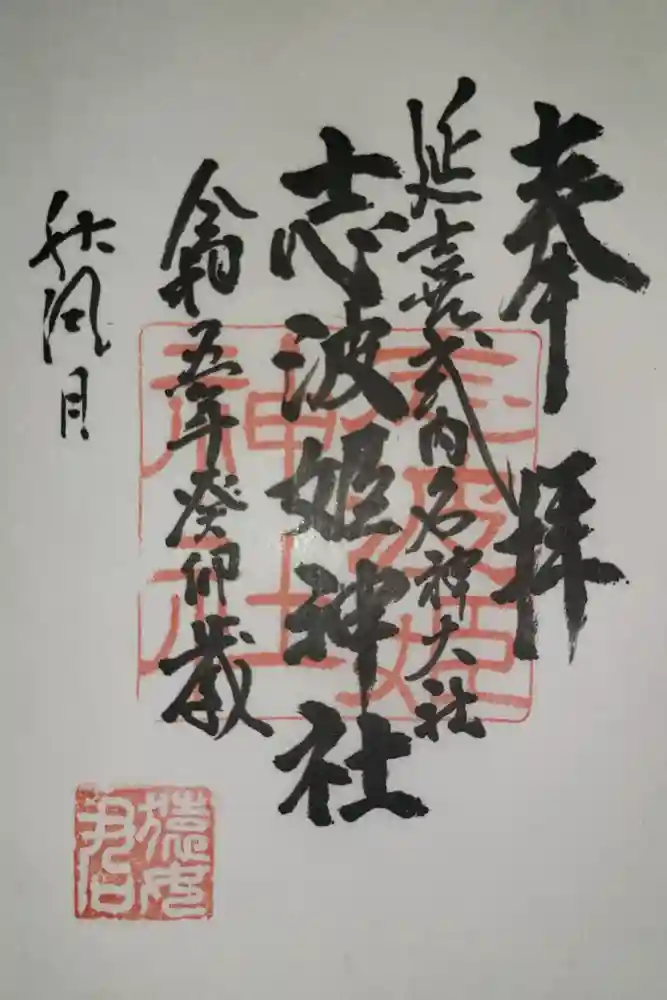 奉拝
延喜式内名神大社
志波姫神社
令和五年癸卯歳
秋風月
志波姫神社